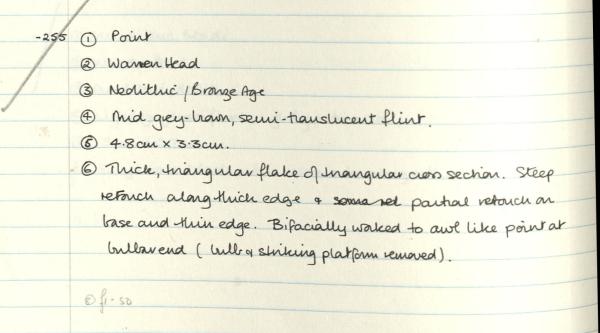 -255 ① Point
② Warren Head
③ Neolithic / Bronze Age
④ Mid grey-brown, semi-translucent flint.
⑤ 4.8cm x 3.3cm.
⑥ Thick, triangular flake of triangular cross section. Steep
retouch along thick edge & some ret partial retouch on
base and thin edge. Bifacially worked to awl like point at
bulbar end ( bulb & striking platform removed).
f1-50